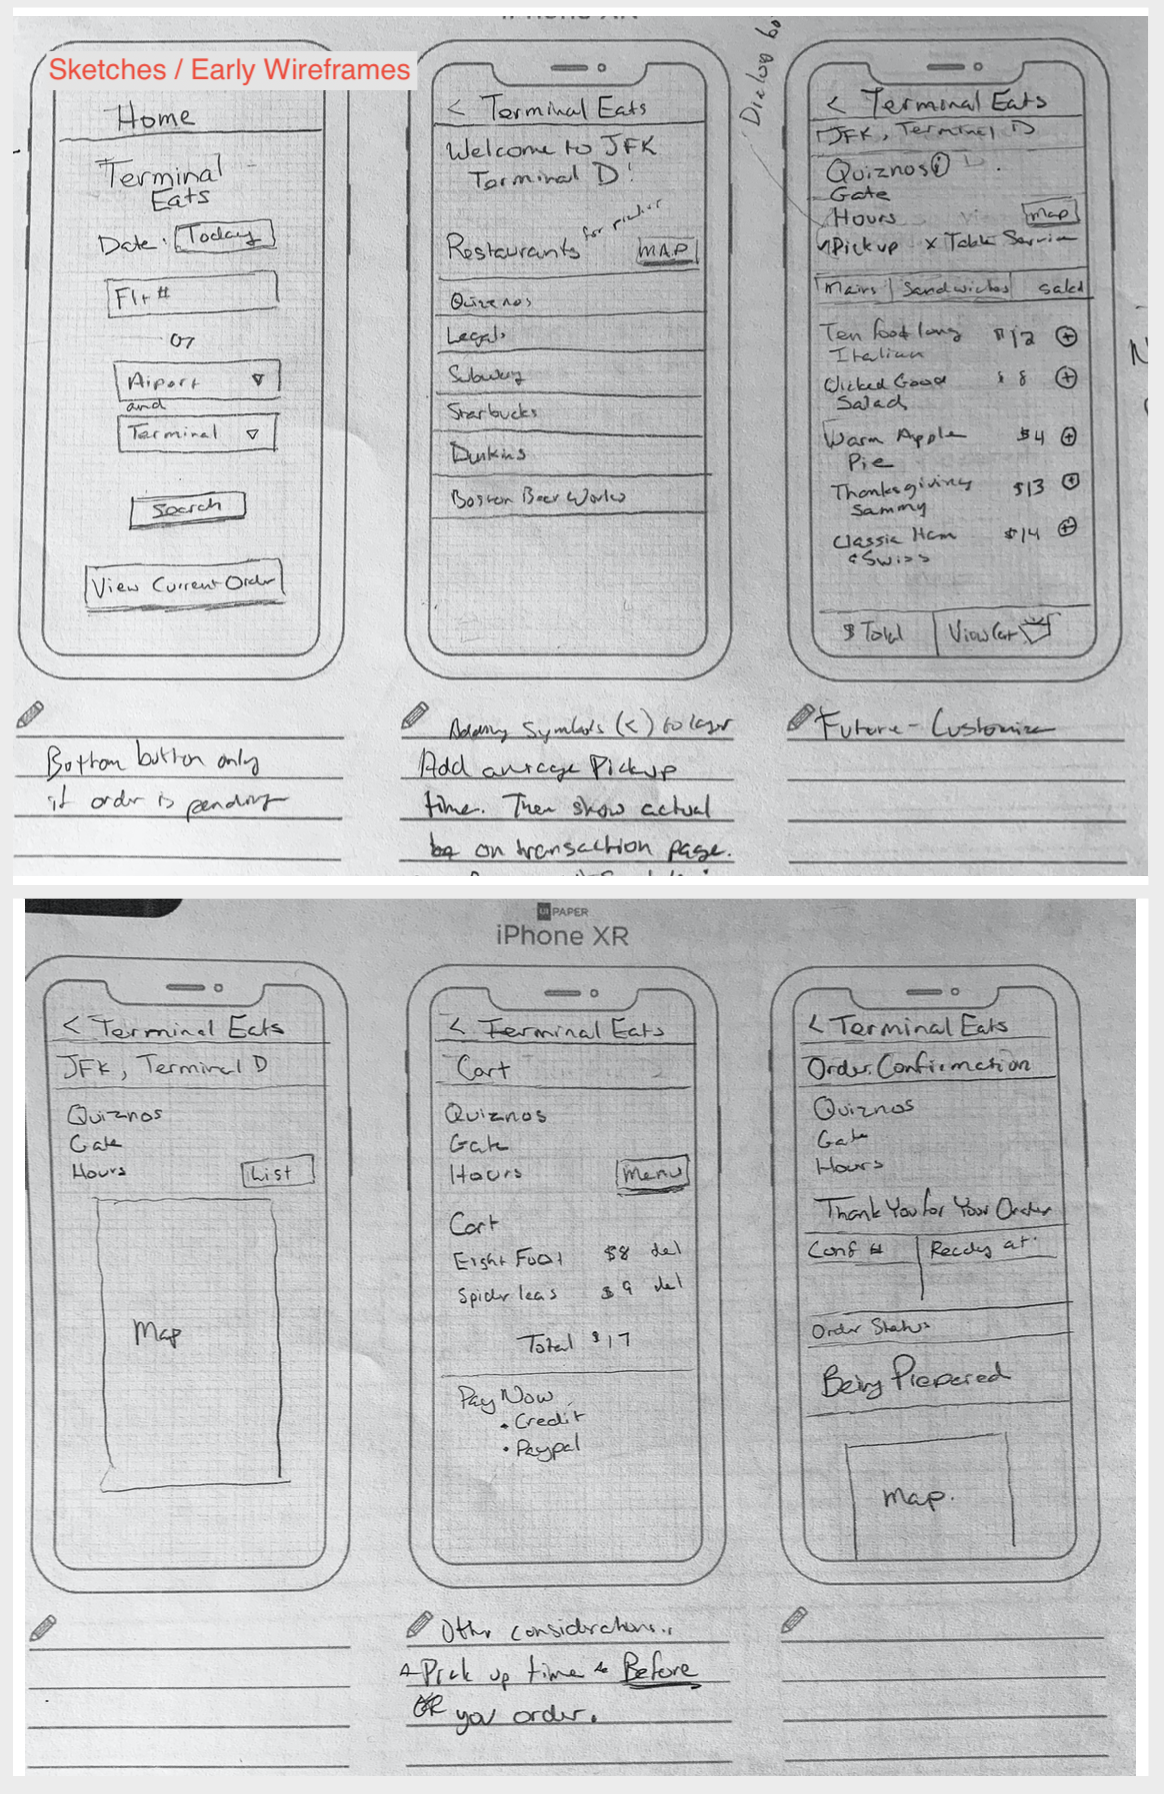 iPhone XR
Sketches / Early Wireframes
Home
Terminal
Eats
Date: Today
Flt #
or
Aiport
and
Terminal
Search
View Current Order
Bottom button only
if order is pending
< Terminal Eats
Welcome to JFK
Terminal D!
Restaurants MAP
Quiznos
Legals
Subway
Starbucks
Dunkins
Boston Beer Works
Adding Symbols (<) to layer
Add average Pickup
time. Then show actual
on transaction page.
Dialog bo
< Terminal Eats
JFK, Terminal D
Quiznos i
Gate
Hours Map
Pickup x Table Service
Mains Sandwiches salad
Ten foot long $12 +
Italian
Wicked Good $8 +
Salads
Warm Apple $4 +
Pie
Thanksgiving $13 +
Sammy
Classic Ham $14 +
& Swiss
$ Total View Cart
Future - Customize
UI PAPER
iPhone XR
< Terminal Eats
JFK, Terminal D
Quiznos
Gate
Hours List
Map
< Terminal Eats
Cart
Quiznos
Gate
Hours Menu
Cart
Eight Foot $8 del
Spider legs $9 del
Total $17
Pay Now
• Credit
• Paypal
Other considerations..
Pick up time Before
you order.
< Terminal Eats
Order Confirmation
Quiznos
Gate
Hours
Thank You for Your Order
Conf # Ready at:
Order Status
Being Prepared
Map.